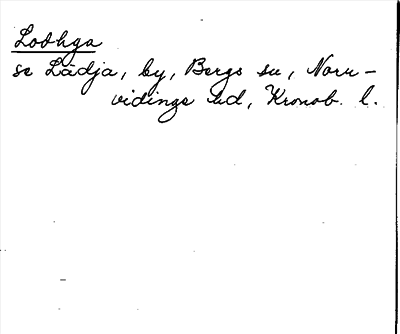 Lodhga
se Lädja, by, Bergs sn, Norr-
vidinge hd, Kronob. l.